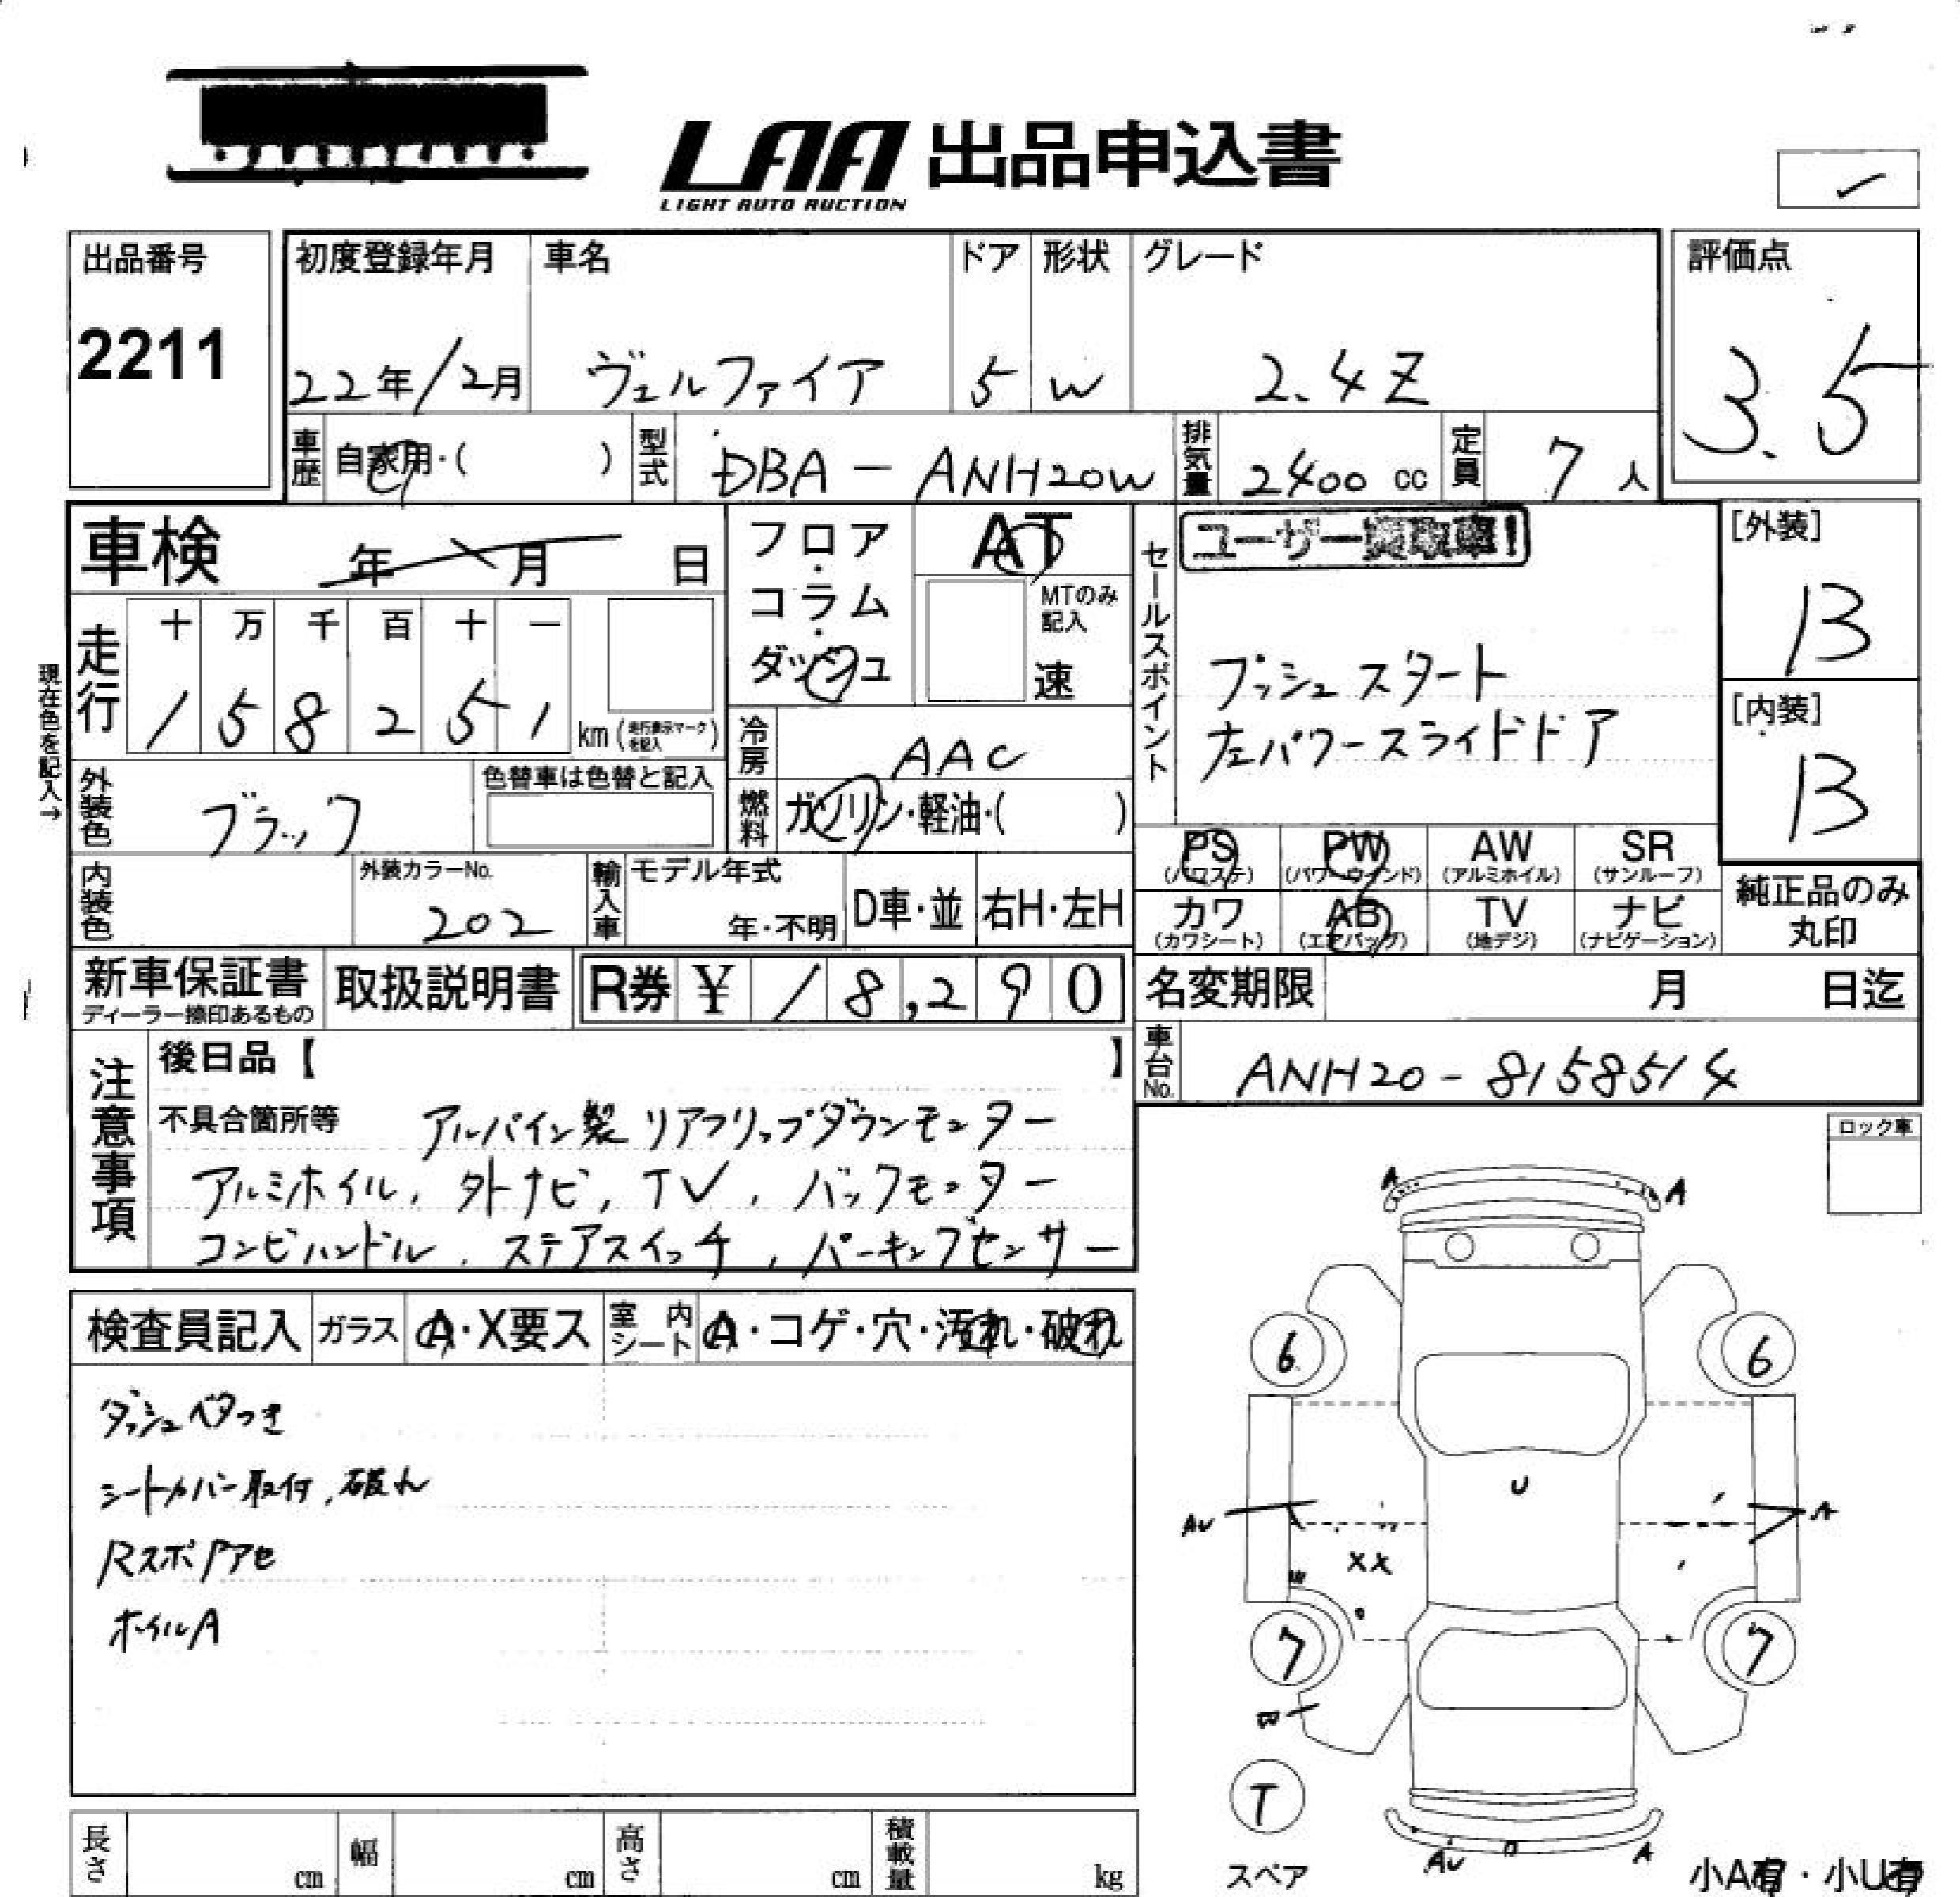 LAA 出品申込書
LIGHT AUTO AUCTION
出品番号
2211
初度登録年月
22年12月
車名
ヴェルファイア
ドア
5
形状
W
グレード
2.4Z
評価点
3.5
車歴
自家用・( )
型式
DBA-ANH20W
排気量
2400 cc
定員
7人
車検 年 月 日
走行
十 万 千 百 十 一
1 5 8 2 5 1 km (走行表示マークを記入)
現在色を記入→
フロア・コラム・ダッシュ
AT
MTのみ記入
速
冷房
AAC
燃料
ガソリン・軽油・( )
外装色
ブラック
色替車は色替と記入
内装色
外装カラーNo.
202
輸入車
モデル年式
年・不明
D車・並
右H・左H
セールスポイント
ユーザー買取車!
プッシュスタート
左パワースライドドア
[外装]
B
[内装]
B
PS
(パワステ)
PW
(パワーウインド)
AW
(アルミホイル)
SR
(サンルーフ)
カワ
(カワシート)
AB
(エアバッグ)
TV
(地デジ)
ナビ
(ナビゲーション)
純正品のみ
丸印
新車保証書
ディーラー捺印あるもの
取扱説明書
R券 ¥ 18,290
名変期限 月 日迄
車台No.
ANH20-8158514
注意事項
後日品【 】
不具合箇所等 アルパイン製リアフリップダウンモニター
アルミホイル, 外ナビ, TV, バックモニター
コンビハンドル, ステアスイッチ, パーキングセンサー
ロック車
検査員記入
ガラス
A・X要ス
室内シート
A・コゲ・穴・汚れ・破れ
ダッシュベタつき
シートカバー取付, 破れ
ホイルA
A A
6 6
U
AU A
XX
7 7
T
スペア
AU A
小A有・小U有
長さ cm
幅 cm
高さ cm
積載量 kg